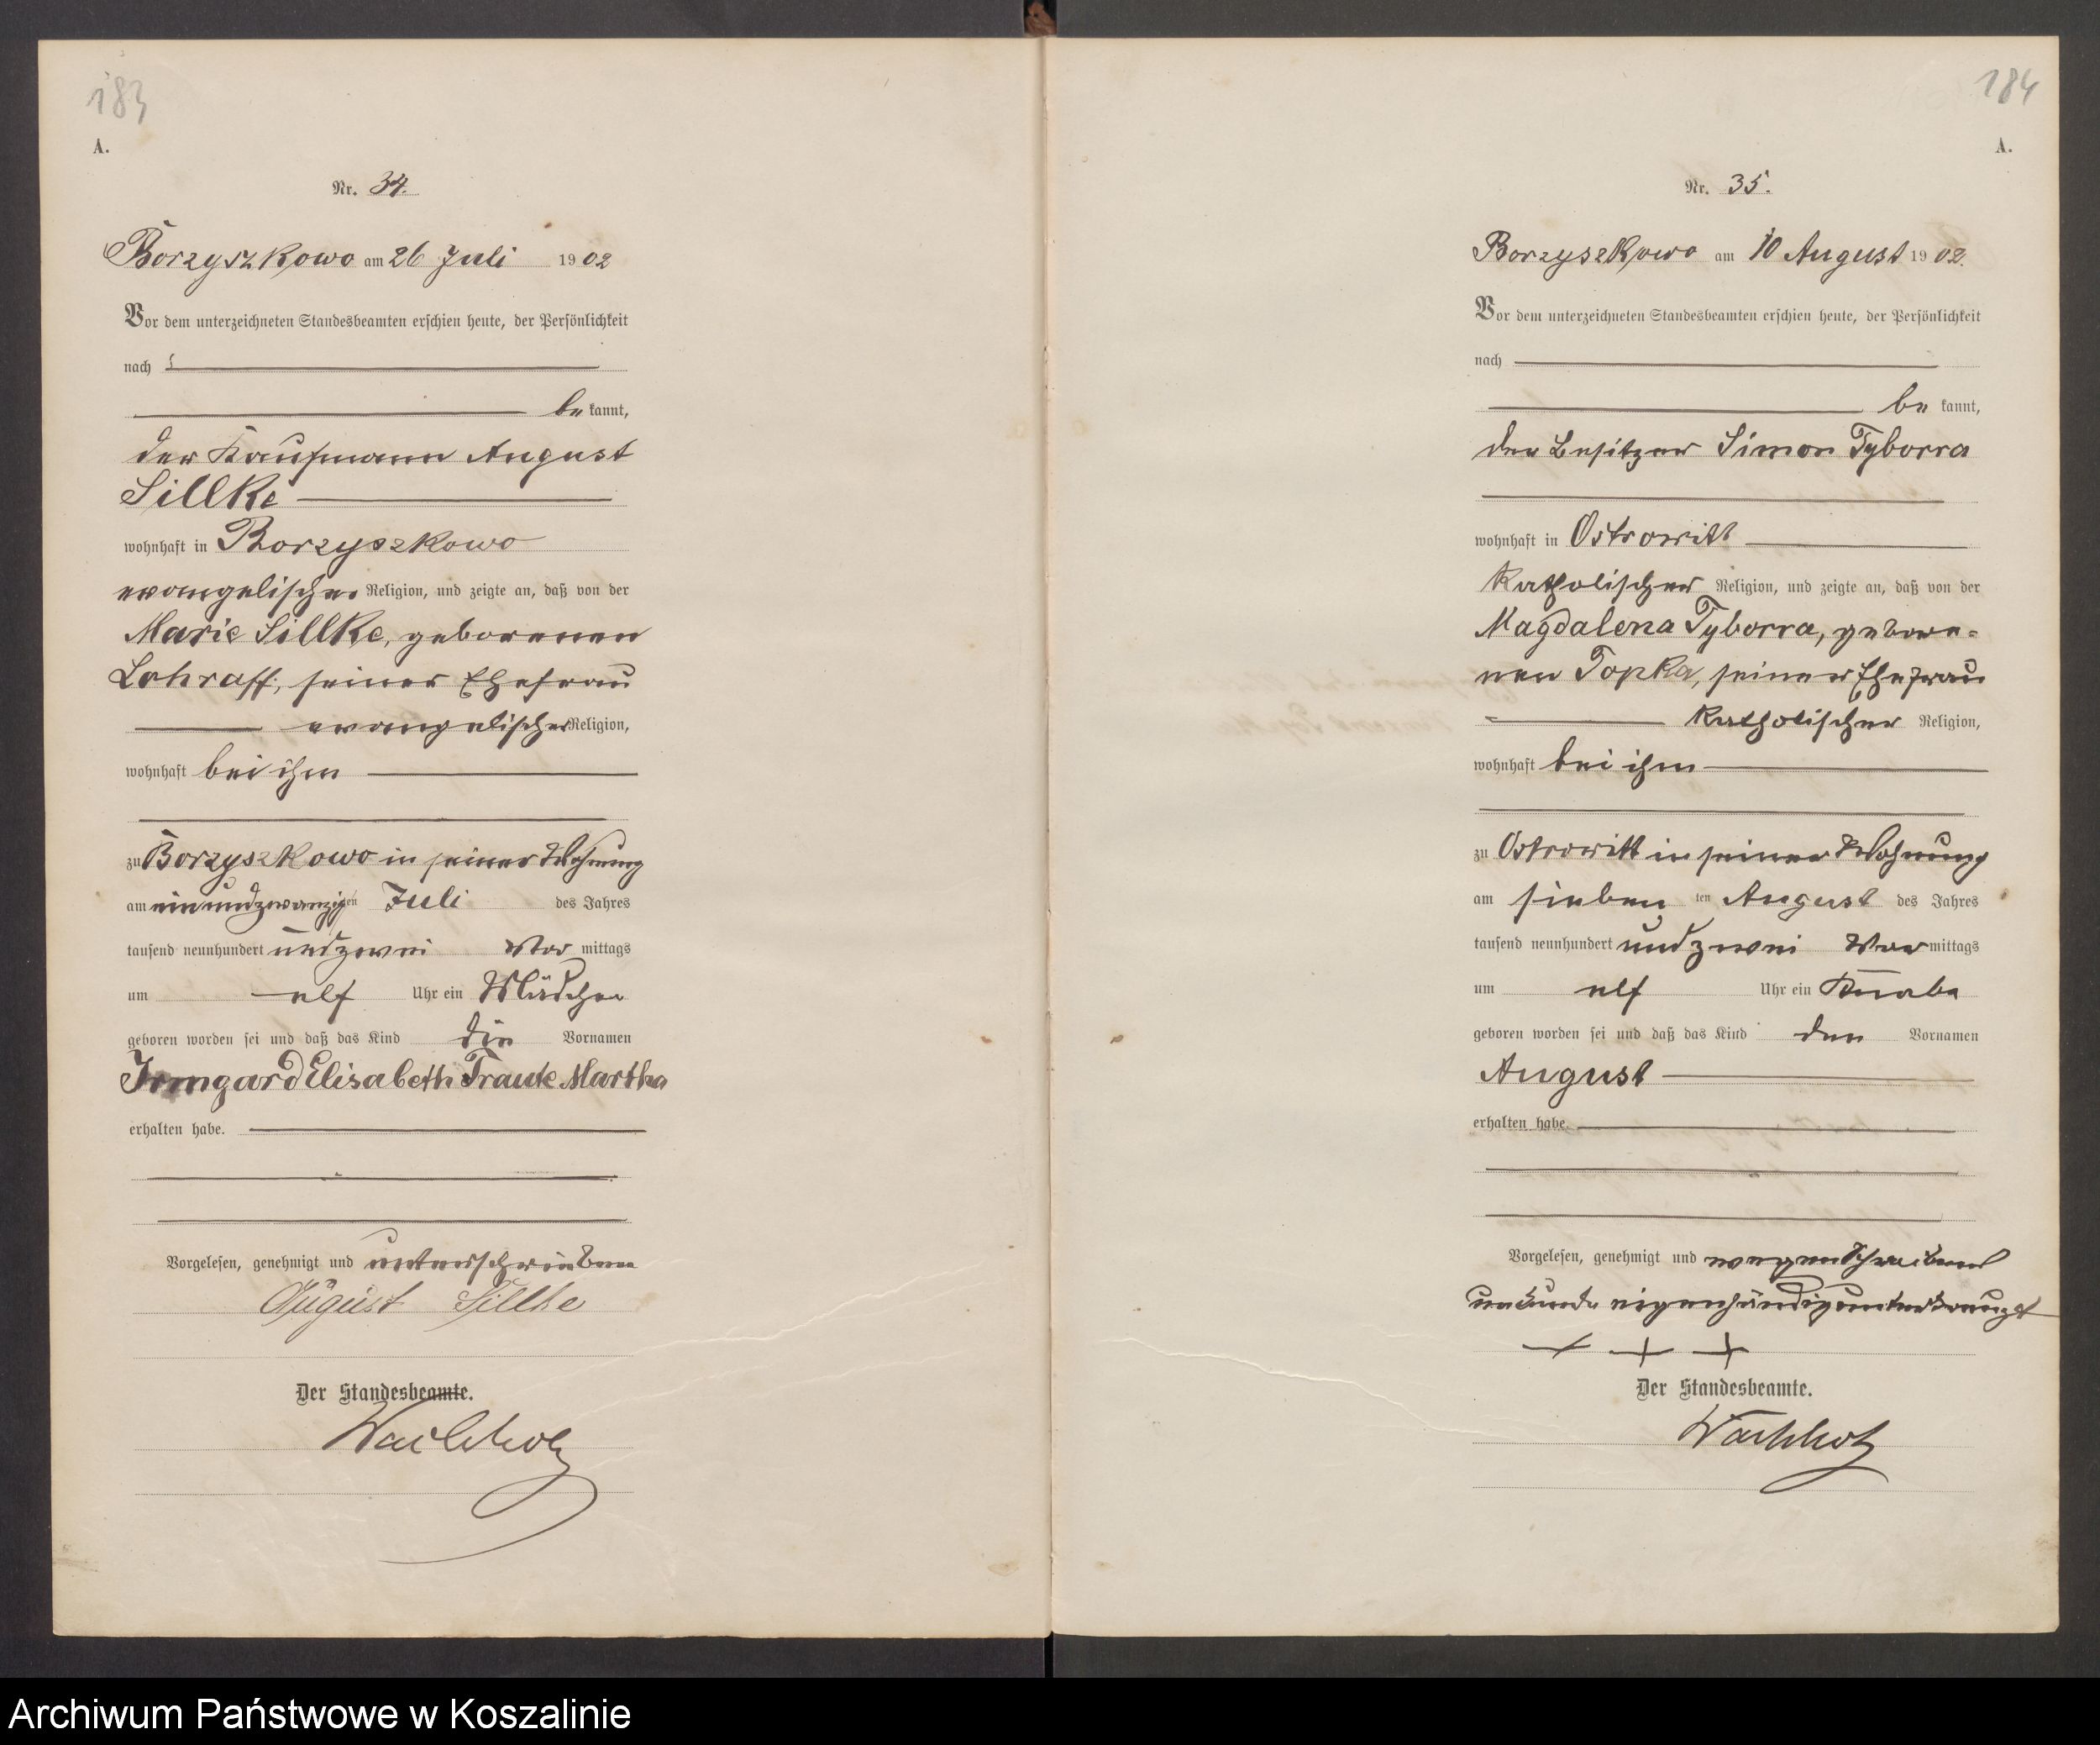 183
A.
Nr. 34.
Borzyszkowo am 26 Juli 1902
Vor dem unterzeichneten Standesbeamten erschien heute, der Persönlichkeit
nach
be kannt,
der Kaufmann August
Sillke
wohnhaft in Borzyszkowo
evangelischer Religion, und zeigte an, daß von der
Marie Sillke, geborenen
Lohraff, seiner Ehefrau
evangelischer Religion,
wohnhaft bei ihm
zu Borzyszkowo in seiner Wohnung
am einundzwanzigten Juli des Jahres
tausend neunhundert und zwei Vor mittags
um elf Uhr ein Mädchen
geboren worden sei und daß das Kind die Vornamen
Irmgard Elisabeth Traute Martha
erhalten habe.
Vorgelesen, genehmigt und unterschrieben
August Sillke
Der Standesbeamte.
Wachholz
184
A.
Nr. 35.
Borzyszkowo am 10 August 1902.
Vor dem unterzeichneten Standesbeamten erschien heute, der Persönlichkeit
nach
be kannt,
der Besitzer Simon Tyborra
wohnhaft in Ostrowitt
katholischer Religion, und zeigte an, daß von der
Magdalena Tyborra, gebore-
nen Topka, seiner Ehefrau
katholischer Religion,
wohnhaft bei ihm
zu Ostrowitt in seiner Wohnung
am sieben ten August des Jahres
tausend neunhundert und zwei Vor mittags
um elf Uhr ein Knabe
geboren worden sei und daß das Kind den Vornamen
August
erhalten habe.
Vorgelesen, genehmigt und wegen Schreibens
unkunde eigenhändig unterkreuzt
+ + +
Der Standesbeamte.
Wachholz
Archiwum Państwowe w Koszalinie